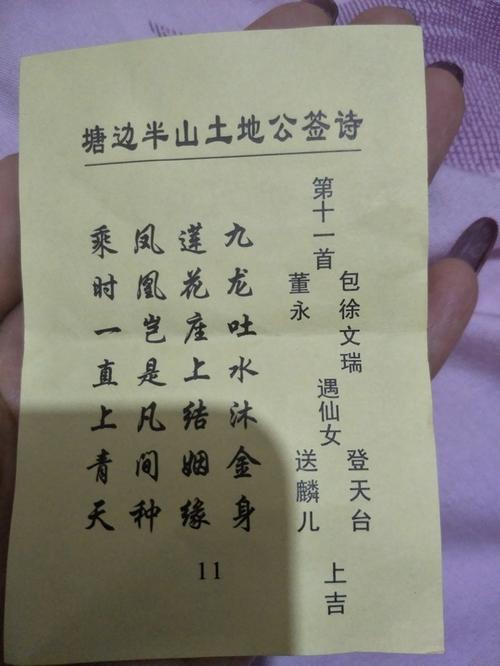 塘边半山土地公签诗
第十一首
包徐文瑞 登天台
遇仙女
董永 送麟儿
上吉
九龙吐水沐金身
莲花座上结姻缘
凤凰岂是凡间种
乘时一直上青天
11